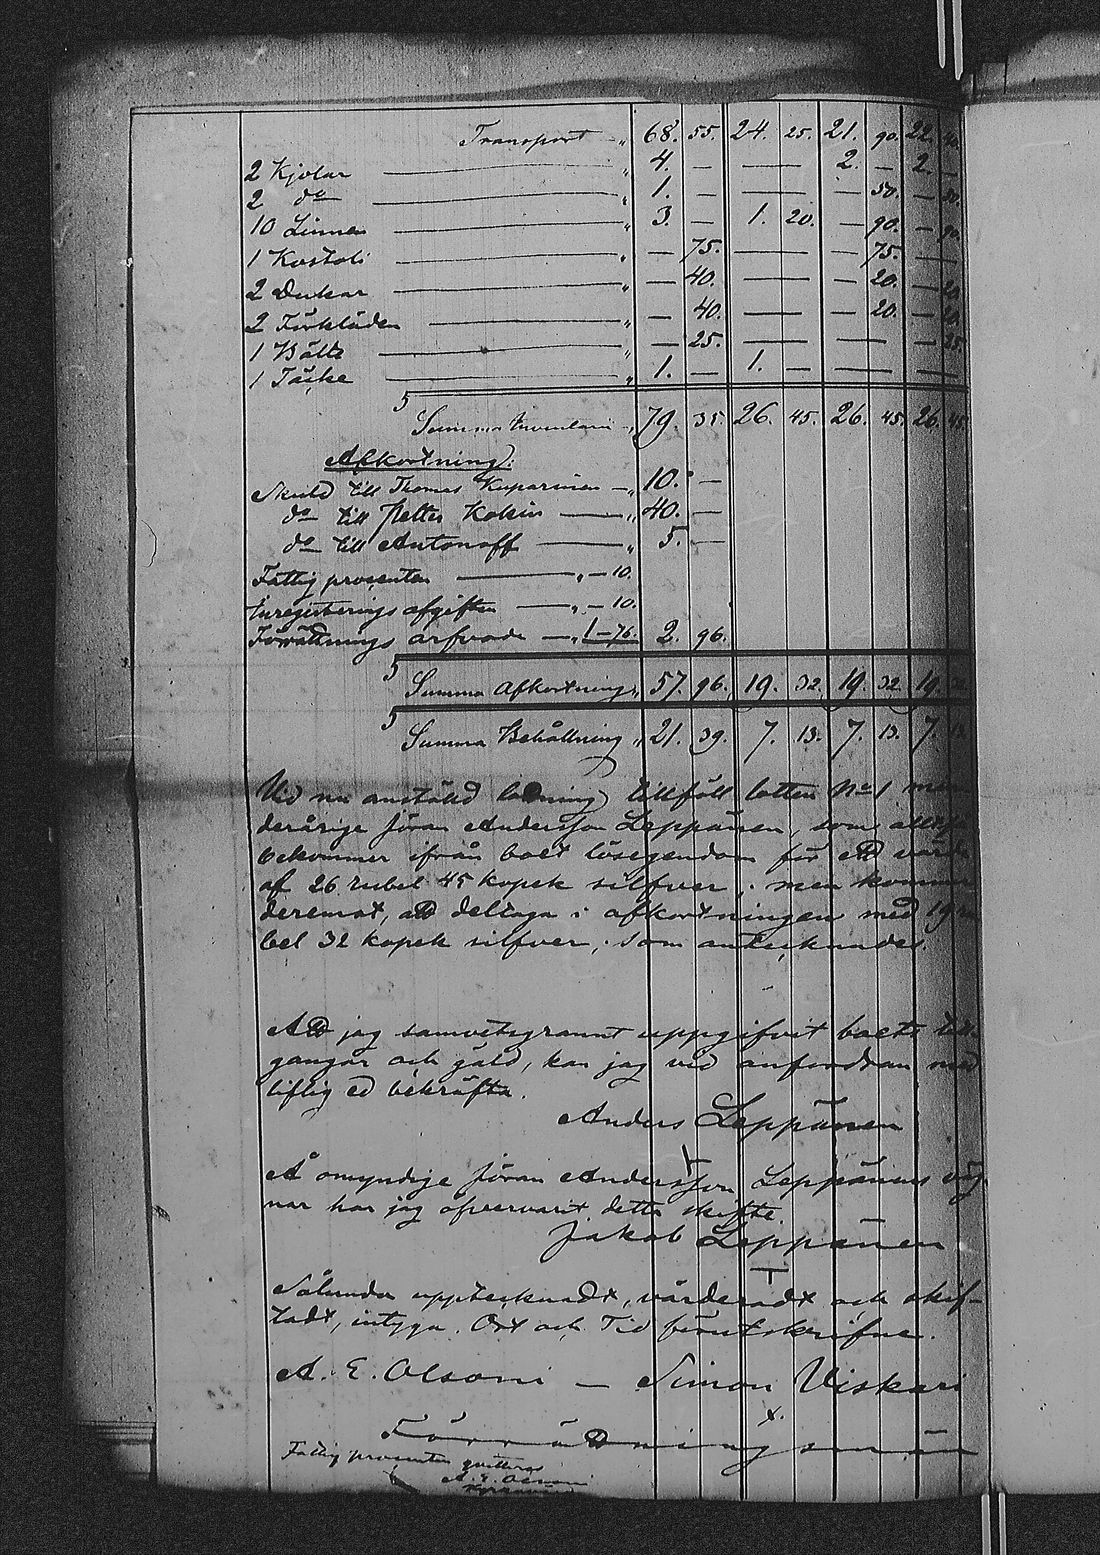 Transport „ 68. 55. 24. 25. 21. 90. 22. 40.
2 Kjolar — „ 4. — — 2. — 2. —
2 do — „ 1. — — — 50. — 50.
10 Linnen — „ 3. — 1. 20. — 90. — 90.
1 Kostoli — „ — 75. — — 75. —
2 Dukar — „ — 40. — — 20. — 20.
2 Förkläden — „ — 40. — — 20. — 20.
1 Bälte — „ — 25. — — — 25.
1 Täcke — „ 1. — 1. — — —
Summa Inventarii „ 79. 35. 26. 45. 26. 45. 26. 45.
Afkortning:
Skuld till Thomas Kuparinen — „ 10. —
do till Petter Kokin — „ 40. —
do till Antonoff — „ 5. —
Fattig procenten — „ — 10.
Inregistrerings afgiften — „ — 10.
Förrättnings arfvode — „ 1 — 76. 2. 96.
Summa Afkortning „ 57. 96. 19. 32. 19. 32. 19. 32.
Summa Behållning „ 21. 39. 7. 13. 7. 13. 7. 13.
Vid nu anstäld lottning tillföll lotten No 1 min
derårige Jöran Andersson Leppänen, som alltså
bekommer ifrån boet lösegendom för ett värde
af 26 rubel 45 kopek silfver; men kommer
deremot, att deltaga i afkortningen med 19 ru
bel 32 kopek silfver, som antecknades.
Att jag samvetsgrannt uppgifvit boets till-
gångar och gäld, kan jag vid anfordran med
liflig ed bekräfta.
Anders Leppänen
Å omyndige Jöran Andersson Leppänens väg-
nar har jag öfvervarit detta skifte.
Jakob Leppänen
Sålunda upptecknadt, värderadt och skif-
tadt, intyga. Ort och Tid förutskrifne.
A. E. Olsoni — Simon Viskari
x.
Förrättningsmän
Fattig procenten qvitteras
A. E. Olsoni